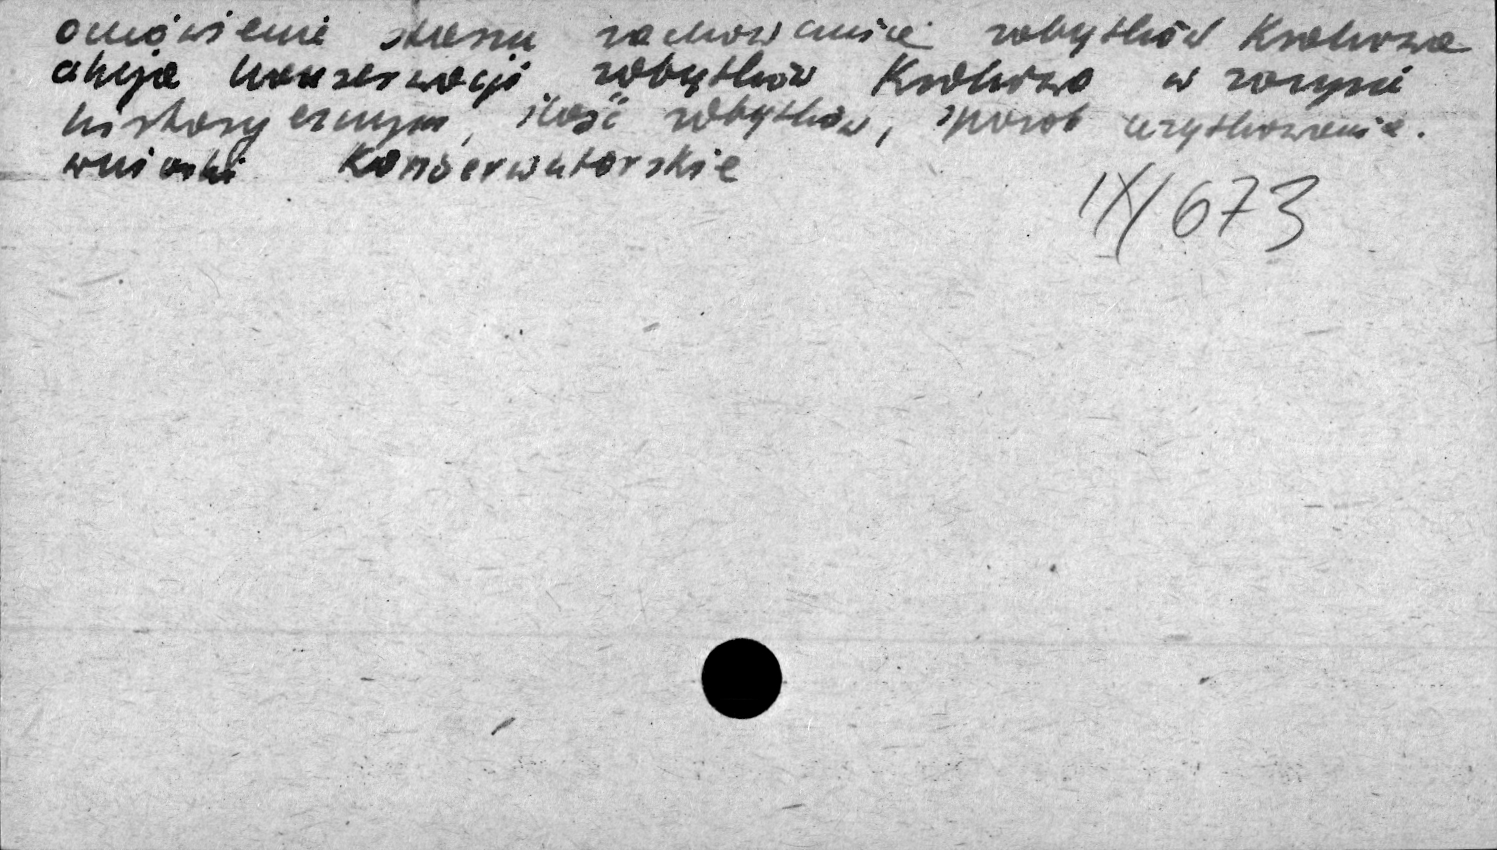 omówienie stanu zachowania zabytków Krakowa
akcja konserwacji zabytków Krakowa w zarysie
historycznym, ilość zabytków, sposób użytkowania.
wnioski Konserwatorskie
IX/673